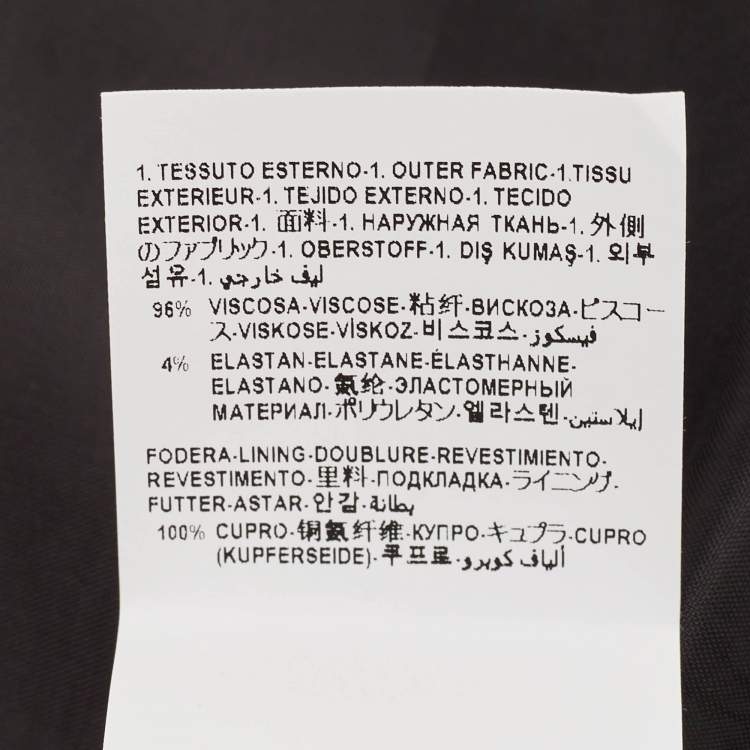 1. TESSUTO ESTERNO-1. OUTER FABRIC-1.TISSU
EXTERIEUR-1. TEJIDO EXTERNO-1. TECIDO
EXTERIOR-1. 面料-1. НАРУЖНАЯ ТКАНЬ-1. 外側
のファブリック-1. OBERSTOFF-1. DIŞ KUMAŞ-1. 외부
섬유-1. ليف خارجي
96% VISCOSA-VISCOSE-粘纤-ВИСКОЗА-ビスコー
ス-VISKOSE-VİSKOZ-비스코스-فيسكوز
4% ELASTAN-ELASTANE-ÉLASTHANNE-
ELASTANO-氨纶-ЭЛАСТОМЕРНЫЙ
МАТЕРИАЛ-ポリウレタン-엘라스텐-إيلاستين
FODERA-LINING-DOUBLURE-REVESTIMIENTO-
REVESTIMENTO-里料-ПОДКЛАДКА-ライニング-
FUTTER-ASTAR-안감-بطانة
100% CUPRO-铜氨纤维-КУПРО-キュプラ-CUPRO
(KUPFERSEIDE)-쿠프로-ألياف كوبرو